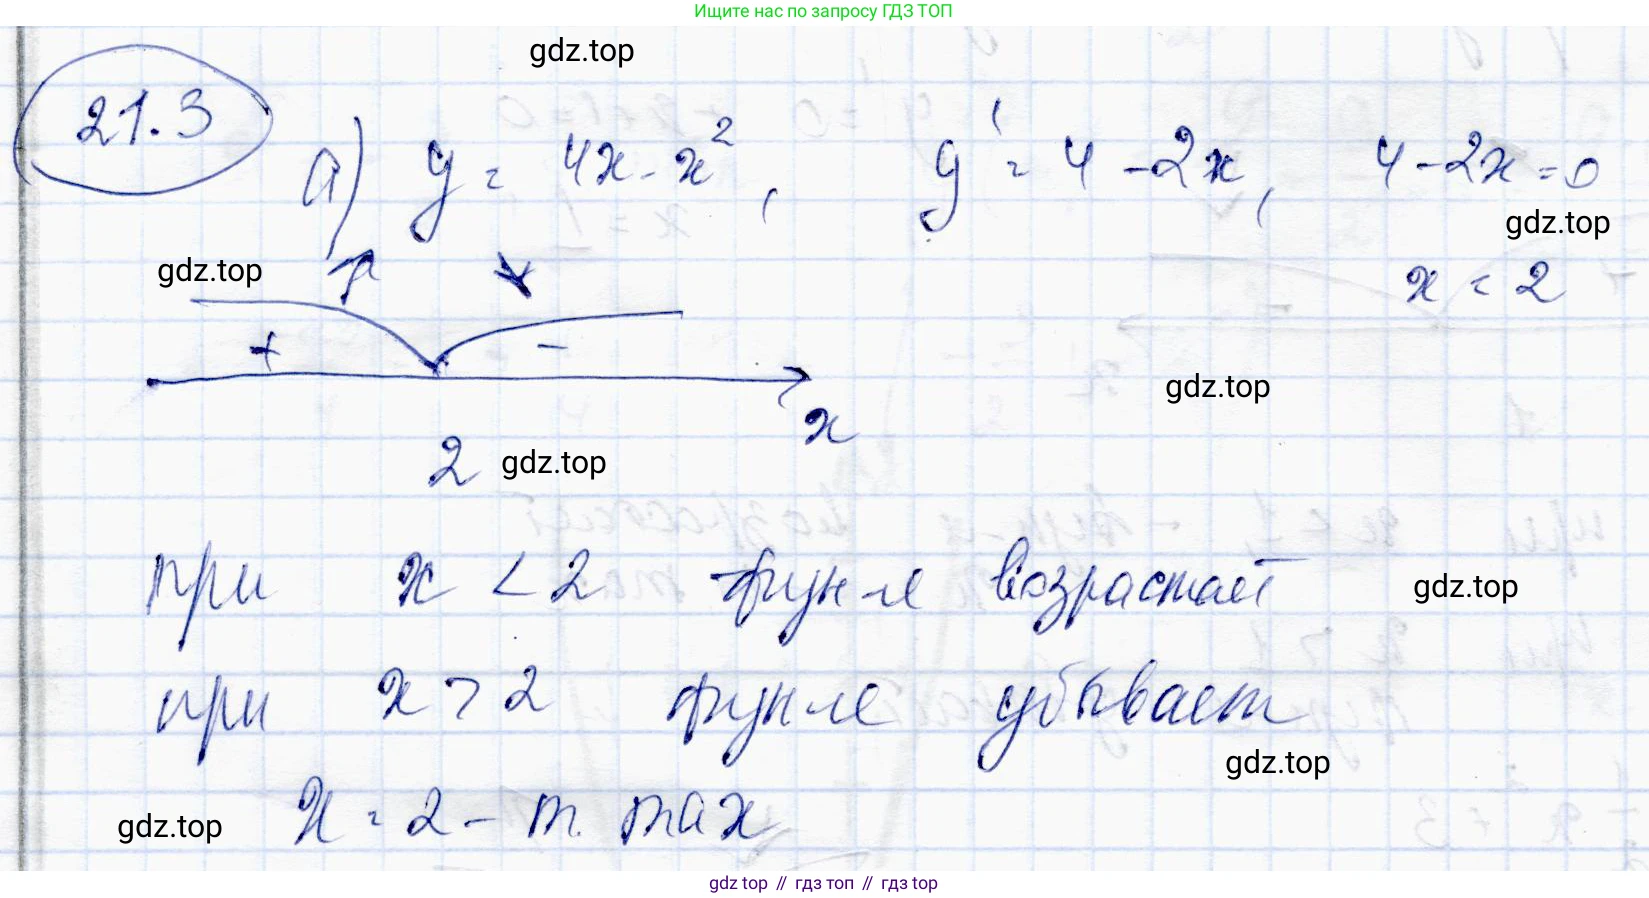 Ищите нас по запросу ГДЗ ТОП
gdz.top
21.3
а) y = 4x - x², y' = 4 - 2x, 4 - 2x = 0
gdz.top
gdz.top
x = 2
+ -
gdz.top
x
2 gdz.top
при x < 2 функ-я возрастает
gdz.top
при x > 2 функ-я убывает
gdz.top
gdz.top
x = 2 - т. max
gdz top // гдз топ // гдз top